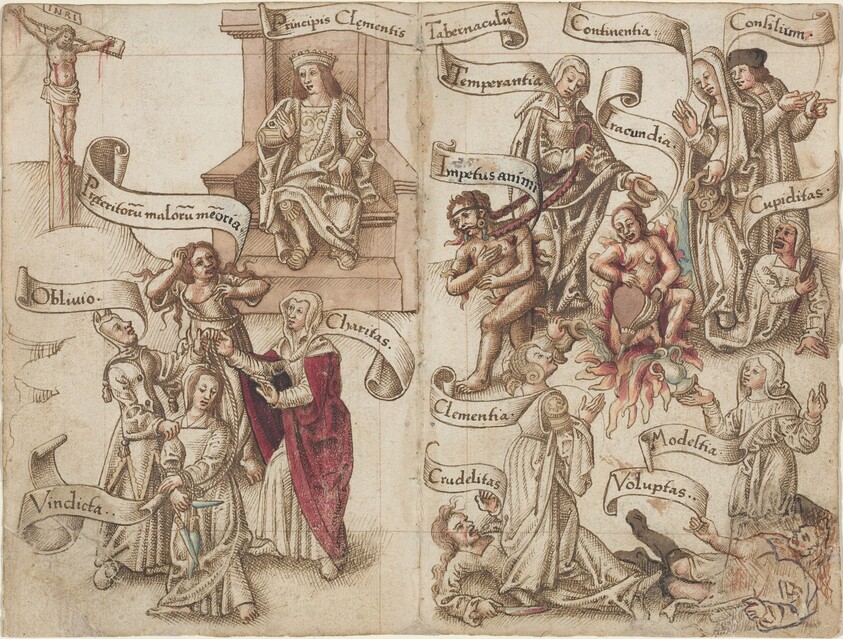 INRI
Principis Clementis Tabernaculū
Continentia:
Consilium.
Temperantia
Iracundia.
Impetus animi
Præteritorū malorū meōria.
Cupiditas.
Oblivio.
Charitas.
Clementia:
Modestia
Crudelitas
Voluptas..
Vindicta..